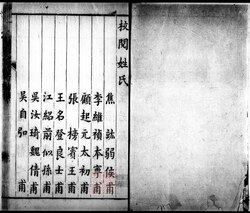 校閱姓氏
焦竑弱侯甫
李維禎本寧甫
顧起元太初甫
張榜賓王甫
王名登良士甫
江紹前似孫甫
吳汝琦魏倩甫
吳自如　甫